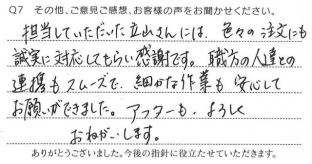 Q7 その他、ご意見ご感想、お客様の声をお聞かせください。
担当していただいた立山さんには、色々の注文にも
誠実に対応してもらい感謝です。職方の人達との
連携もスムーズで、細かな作業も安心して
お願いができました。アフターも、よろしく
おねがいします。
ありがとうございました。今後の指針に役立たせていただきます。